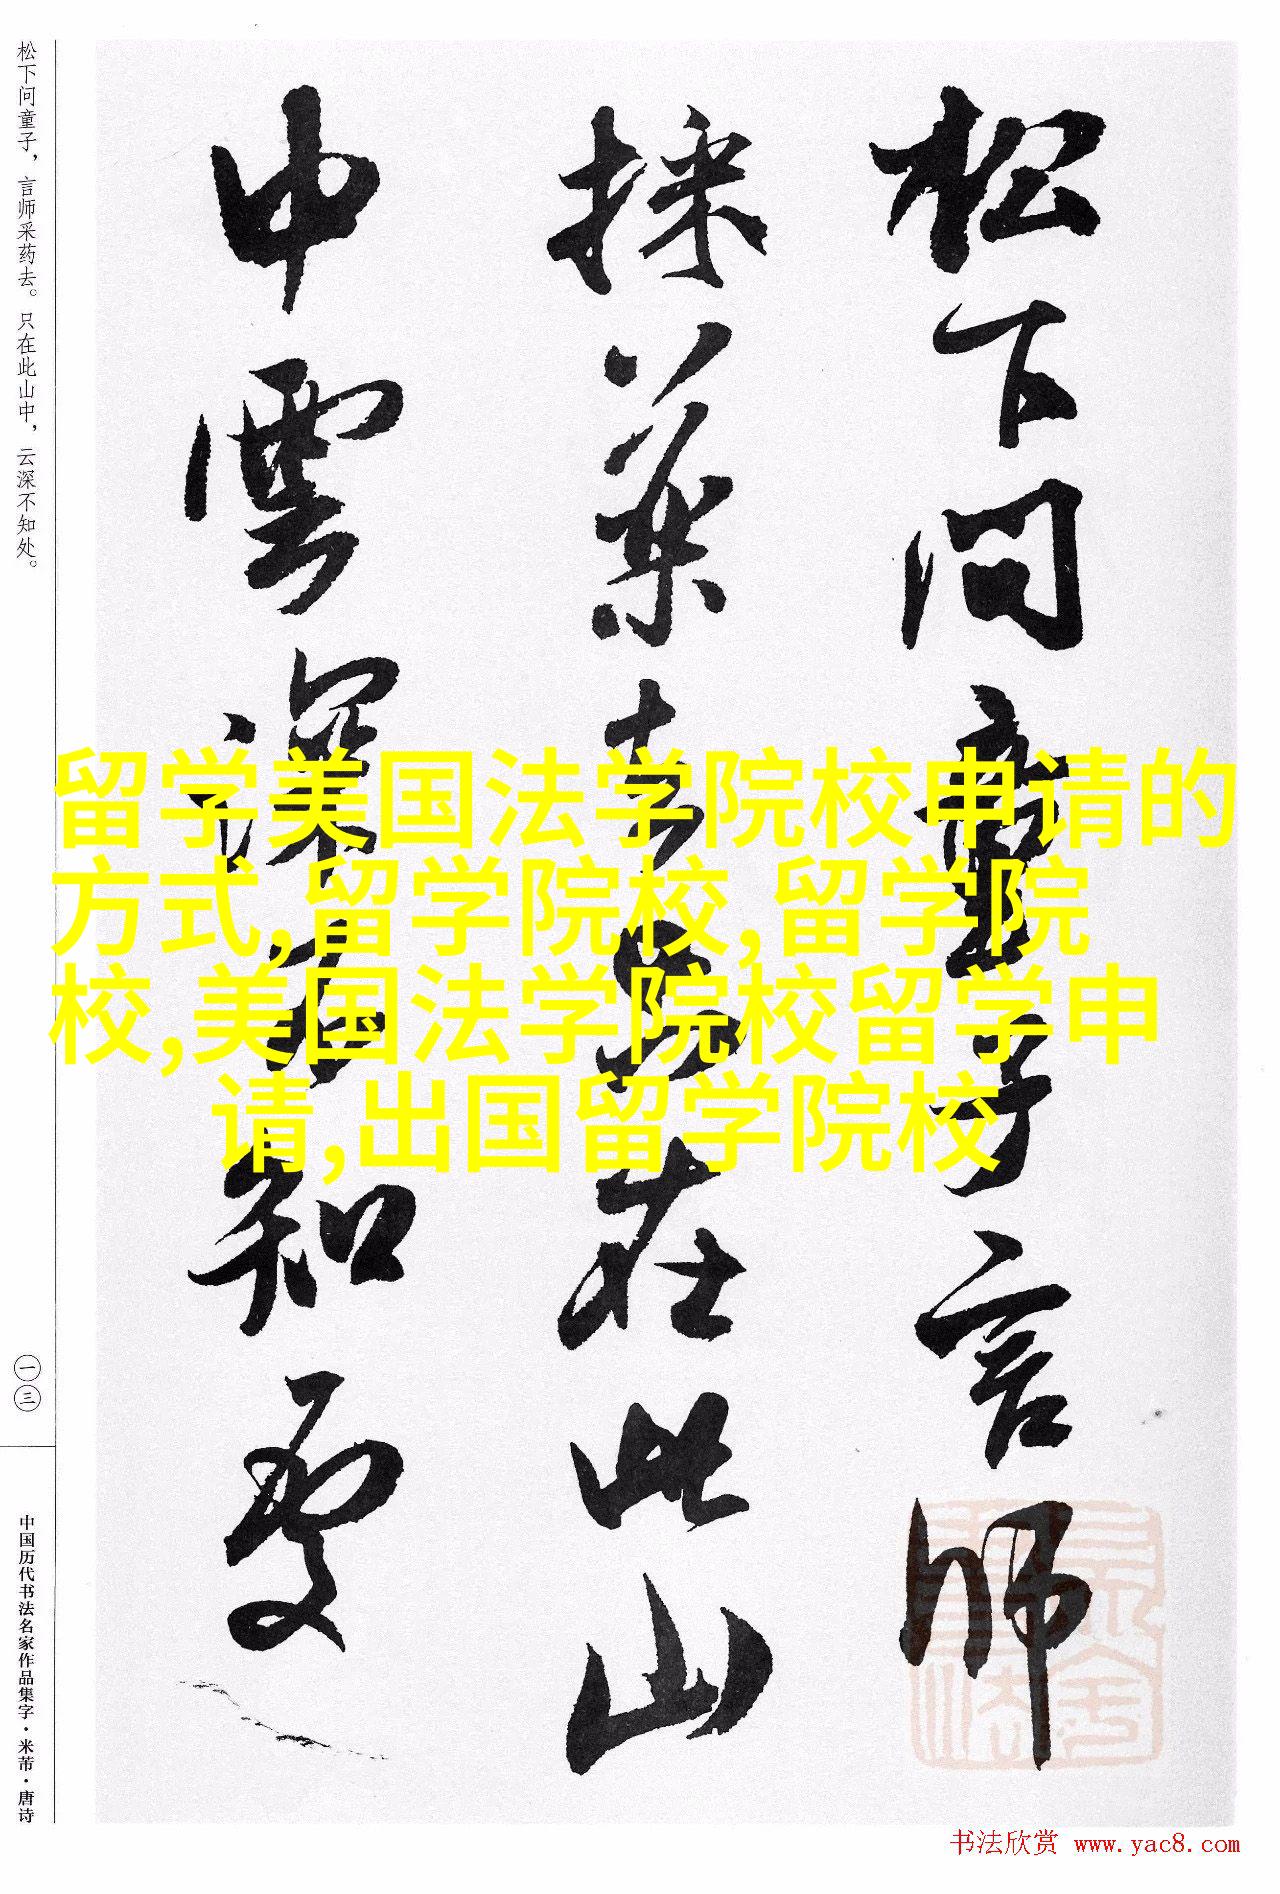 松下问童子，言师采药去。只在此山中，云深不知处。
松下问童子言师
採药去只在此山
中雲深不知處
留学美国法学院校申请的
方式,留学院校,留学院
校,美国法学院校留学申
请,出国留学院校
一三
中国历代书法名家作品集字·米芾·唐诗
书法欣赏 www.yac8.com